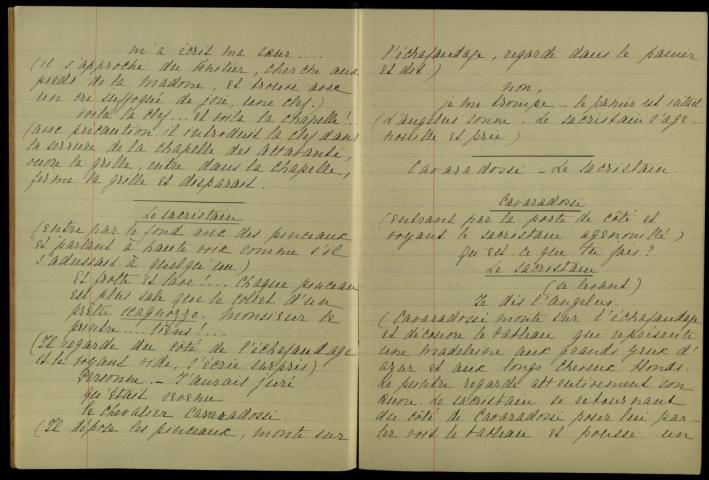 m'a écrit ma sœur....
(il s'approche du bénitier, cherche aux
pieds de la madone, et trouve avec
un cri suffoqué de joie, une clef.)
voilà la clef... Et voilà la chapelle!..
(avec précaution il introduit la clef dans
la serrure de la chapelle des Attavanti,
ouvre la grille, entre dans la chapelle,
ferme la grille et disparait.
Le sacristain
(entre par le fond avec des pinceaux
et parlant à haute voix comme s'il
s'adressait à quelqu'un)
Et frotte et lave!... Chaque pinceau
est plus sale que le collet d'un
prêtre scagnozzo. Monsieur le
peintre..! Tiens!...
(Il regarde du côté de l'échafaudage
et le voyant vide, s'écrie surpris)
Personne. - J'aurais juré
qu'était revenu
le chevalier Cavaradossi.
(Il dépose les pinceaux, monte sur
l'échafaudage, regarde dans le panier
et dit.)
non,
je me trompe - le panier est intact.
(L'angelus sonne. Le sacristain s'age-
nouille et prie)
Cavaradossi - Le sacristain.
Cavaradossi
(entrant par la porte de côté et
voyant le sacristain agenouillé)
qu'est ce que tu fais?
Le sacristain
(se levant)
Je dis l'angelus.
(Cavaradossi monte sur l'échafaudage
et découvre le tableau qui représente
une Madeleine aux grands yeux d'
azur et aux longs cheveux blonds.
Le peintre regarde attentivement son
œuvre. Le sacristain se retournant
du côté de Cavaradossi pour lui par-
ler voit le tableau et pousse un